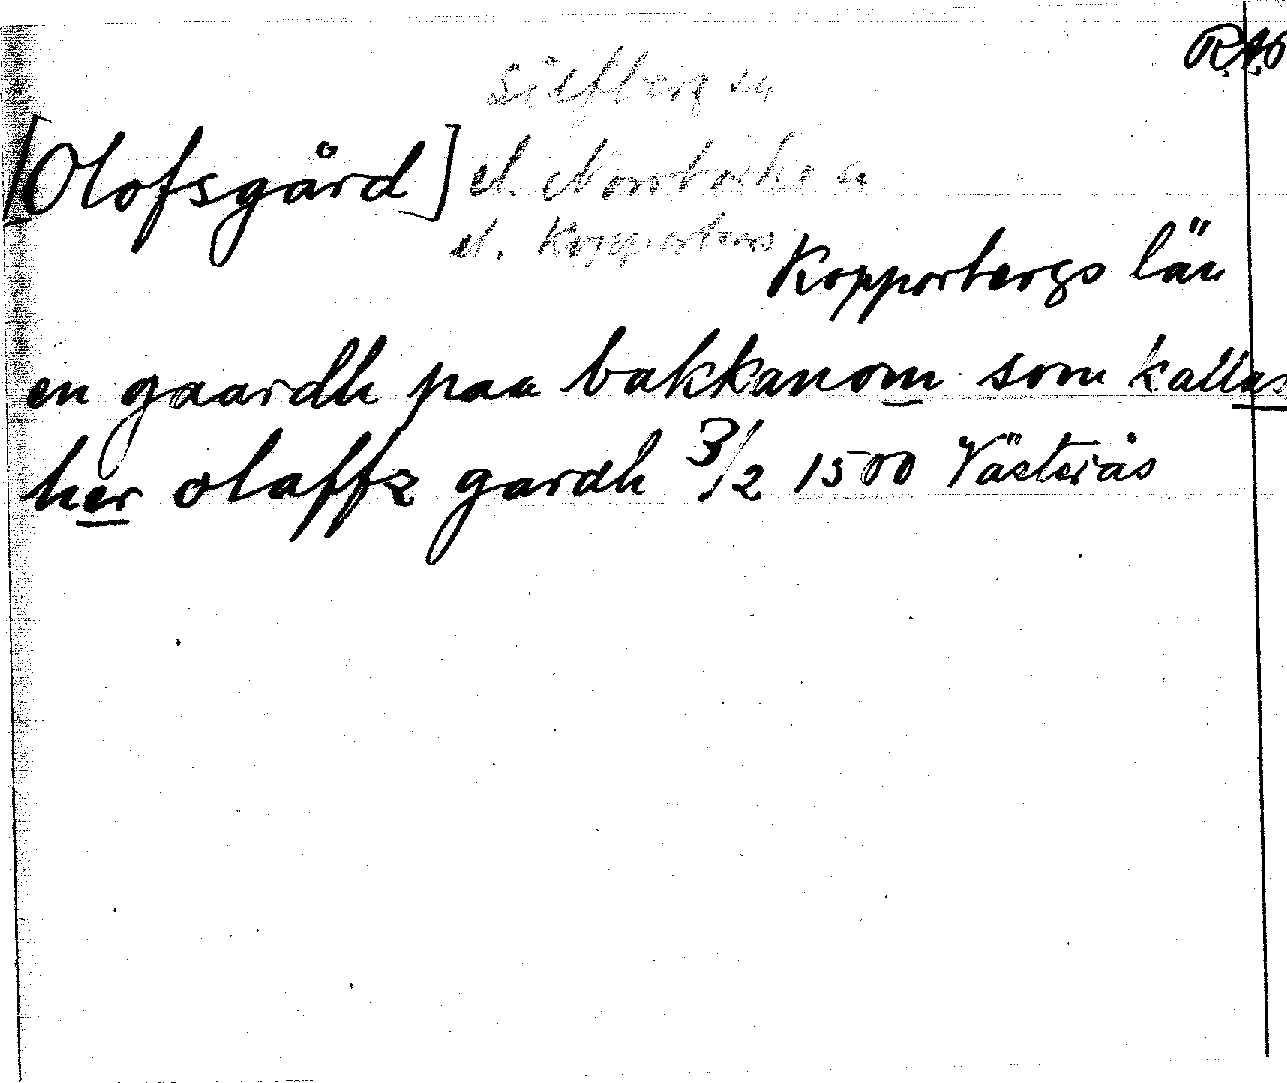 RAÖ
Silfberg sn
[Olofsgård] el. Norrbärke sn
el. Kopparbergs
Kopparbergs län
en gaardh paa bakkanom som kallas
her olaffz gardh 3/2 1500 Västerås